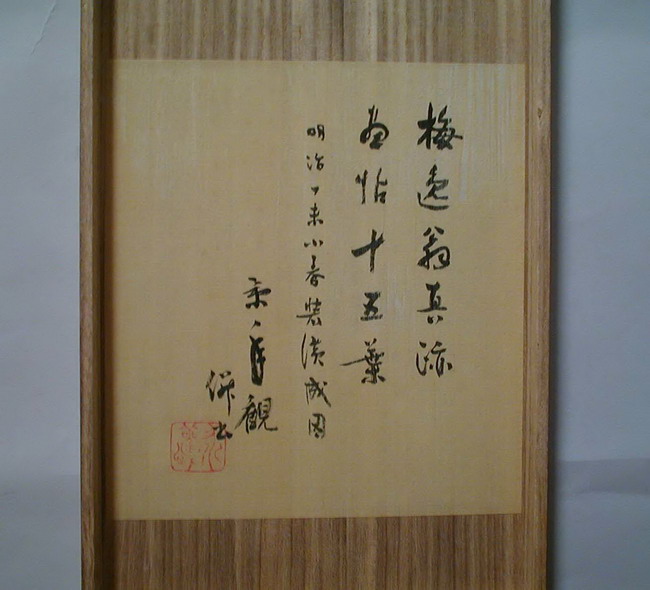 梅逸翁真跡
画帖十五葉
明治丁未小春装潢成因
観
併書